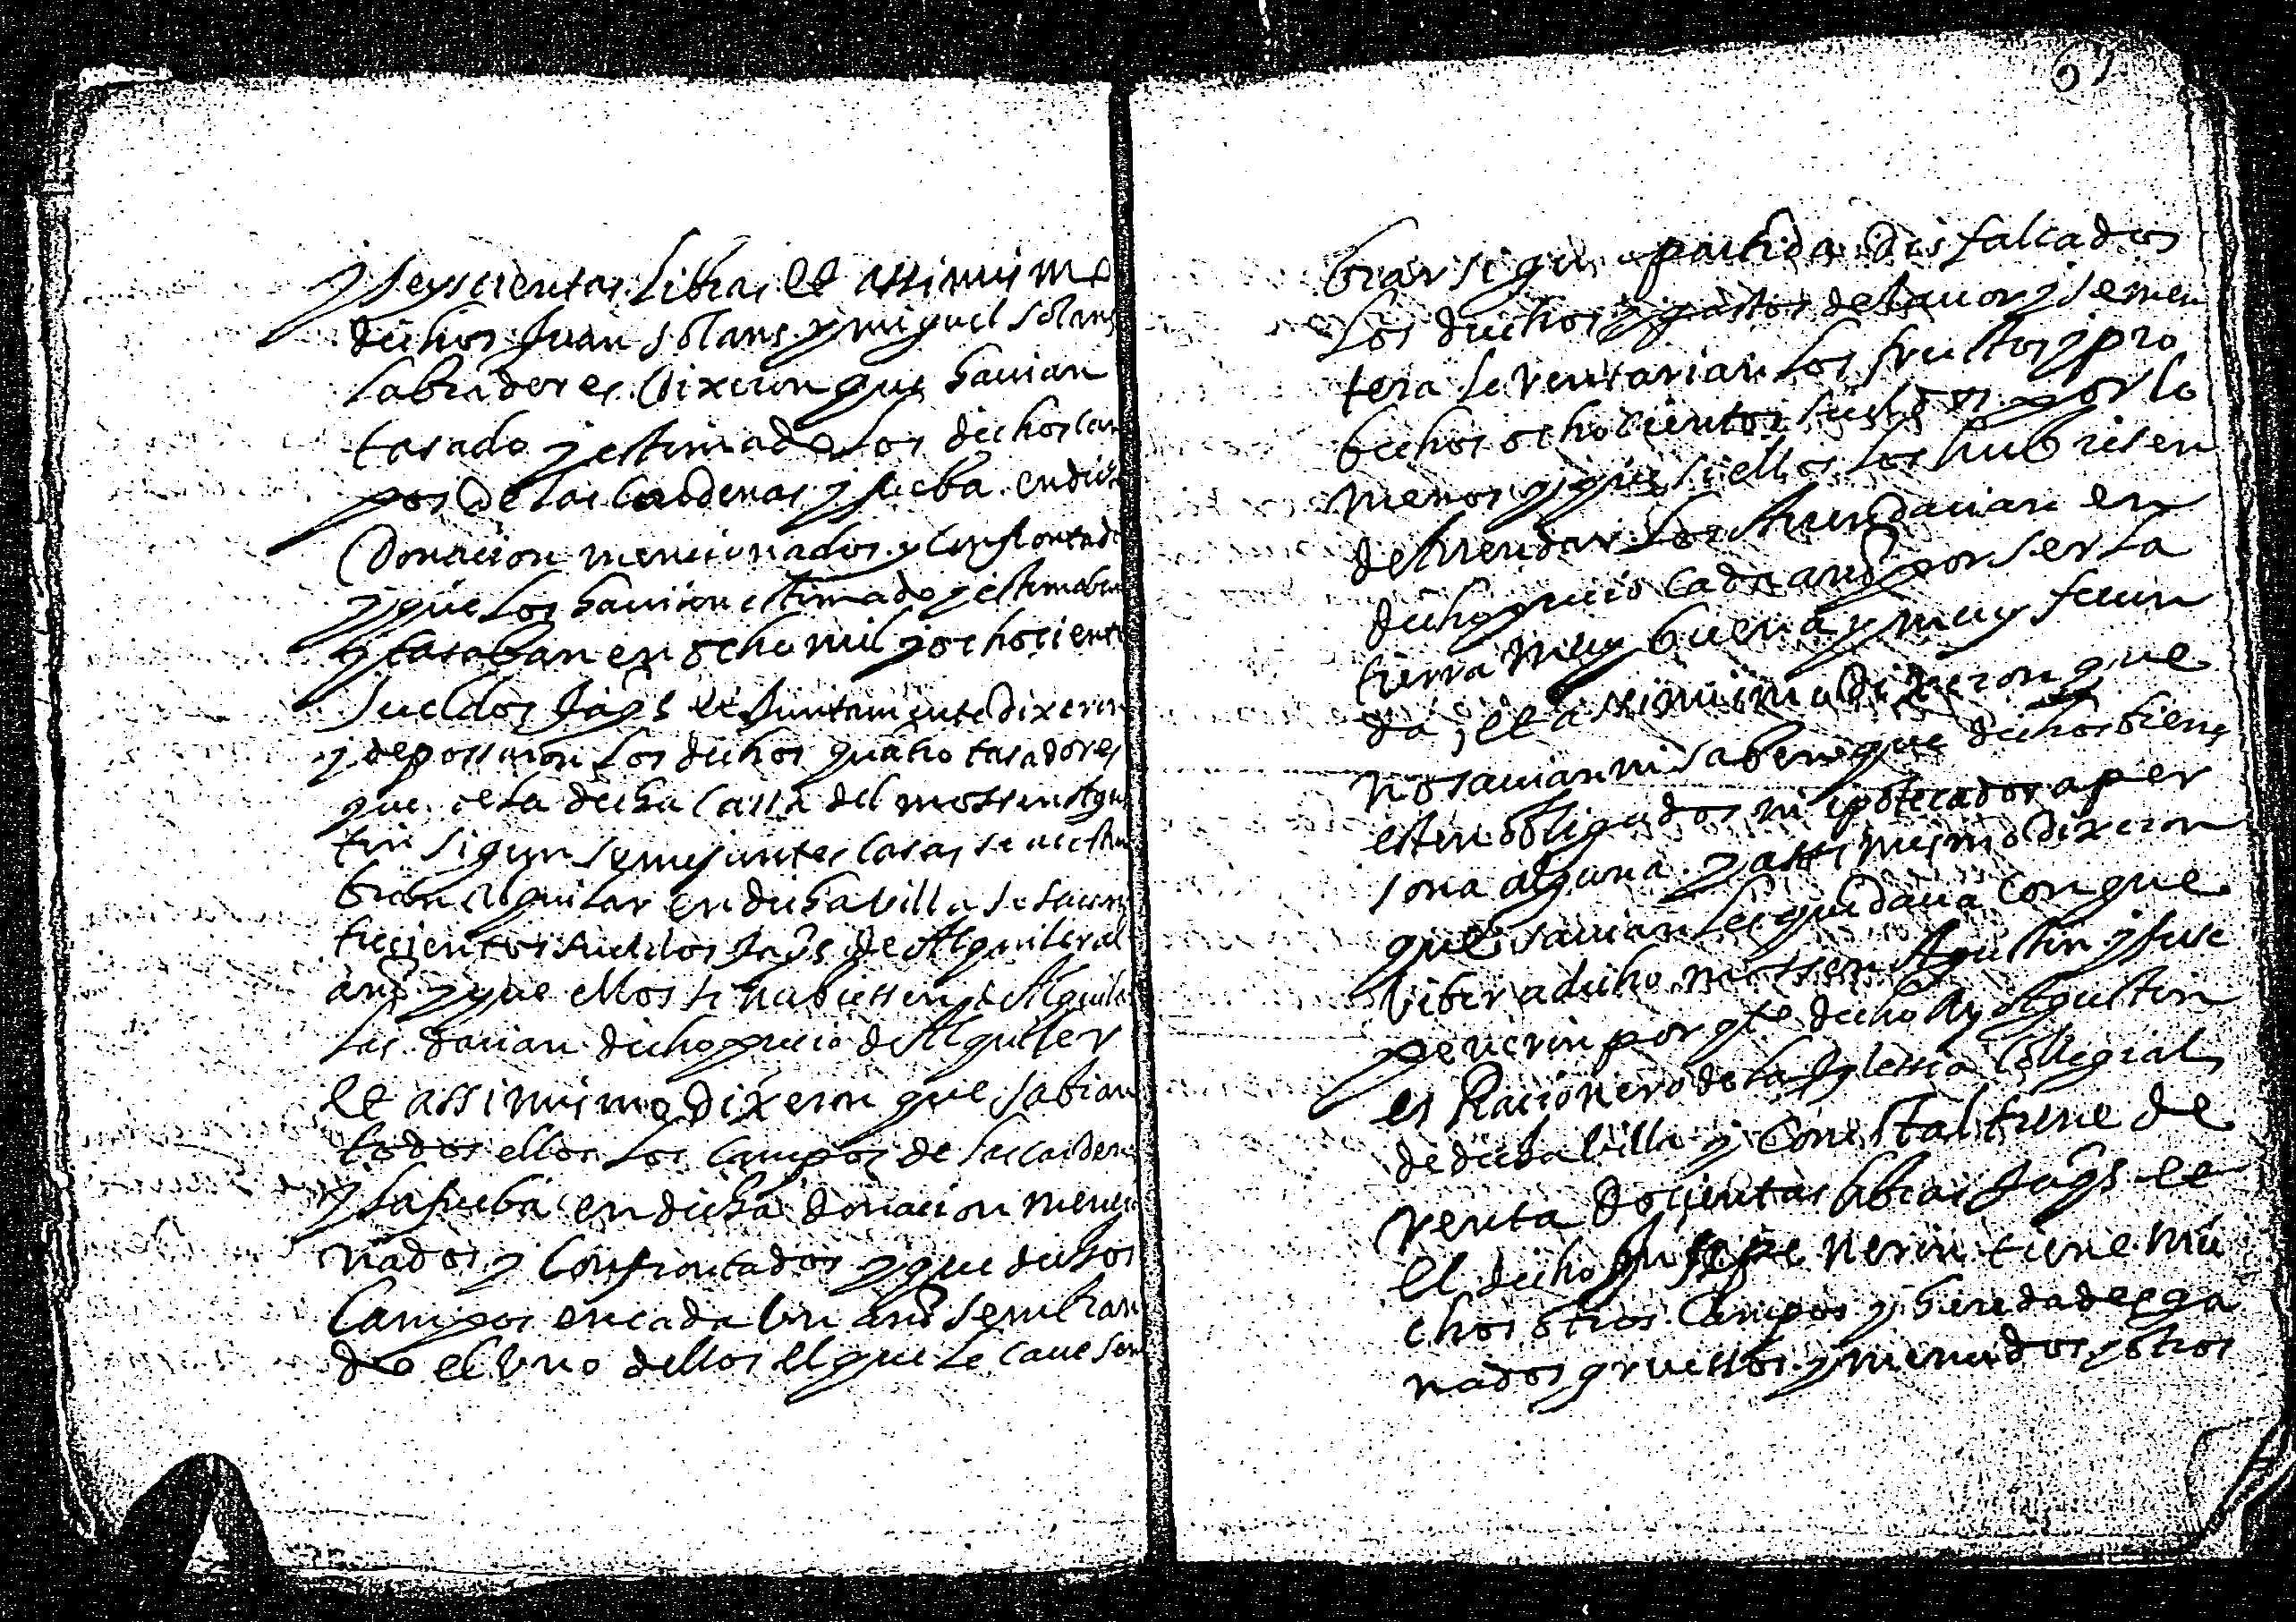 y seyscientas libras et assimismo
dichos Juan Solans y miguel Solans
labradores dixeron que hauian
tasado y estimado los dichos cam
pos de las Cardenas y fueba en dicha
Donacion mencionados y confrontados
y que los hauian estimado y estimaban
y tasaban en ocho mil y ochocientos
sueldos Jaqs et Juntamente dixeron
y depossaron los dichos quatro tasadores
que de la dicha cassa del mossen Agus
tin sigun semejantes casas se acostum
bran Alquilar en dicha villa se
trecientos sueldos Jaqs de Alquiler al
año y que ellos si hubiessen de Alquilar
las darian dicho precio de Alquiler
et assimismo dixeron que sabian
todos ellos los campos de las cardenas
y la fueba en dicha donacion mencio
nados y confrontados y que dichos
Campos en cada un año sembran
do el uno dellos el que le caue sem
67
brar sigun partida disfalcados
los dichos y gastos de lauor y semen
tera se rentarian los fructos y pro
bechos ochocientos sueldos por lo
menos y que si ellos los hubiesen
de Arrendar los Arrendarian en
dicho precio cada año por ser la
tierra muy buena y muy fecun
da, et assimismo dixeron que
no sauian ni saben que dichos bienes
esten obligados ni ipotecados a per
sona alguna y assimesmo dixeron
que sauian les quedaua con que
vibir a dicho mossen Agustin y Juse
pe nerin por qte dicho Agustin
es Racionero de la Iglessia Collegial
de dicha villa y Como tal tiene de
renta docientas libras Jaqs et
el dicho Jusepe nerin tiene mu
chos otros Campos y heredades ga
nados gruessos y menudos y otros